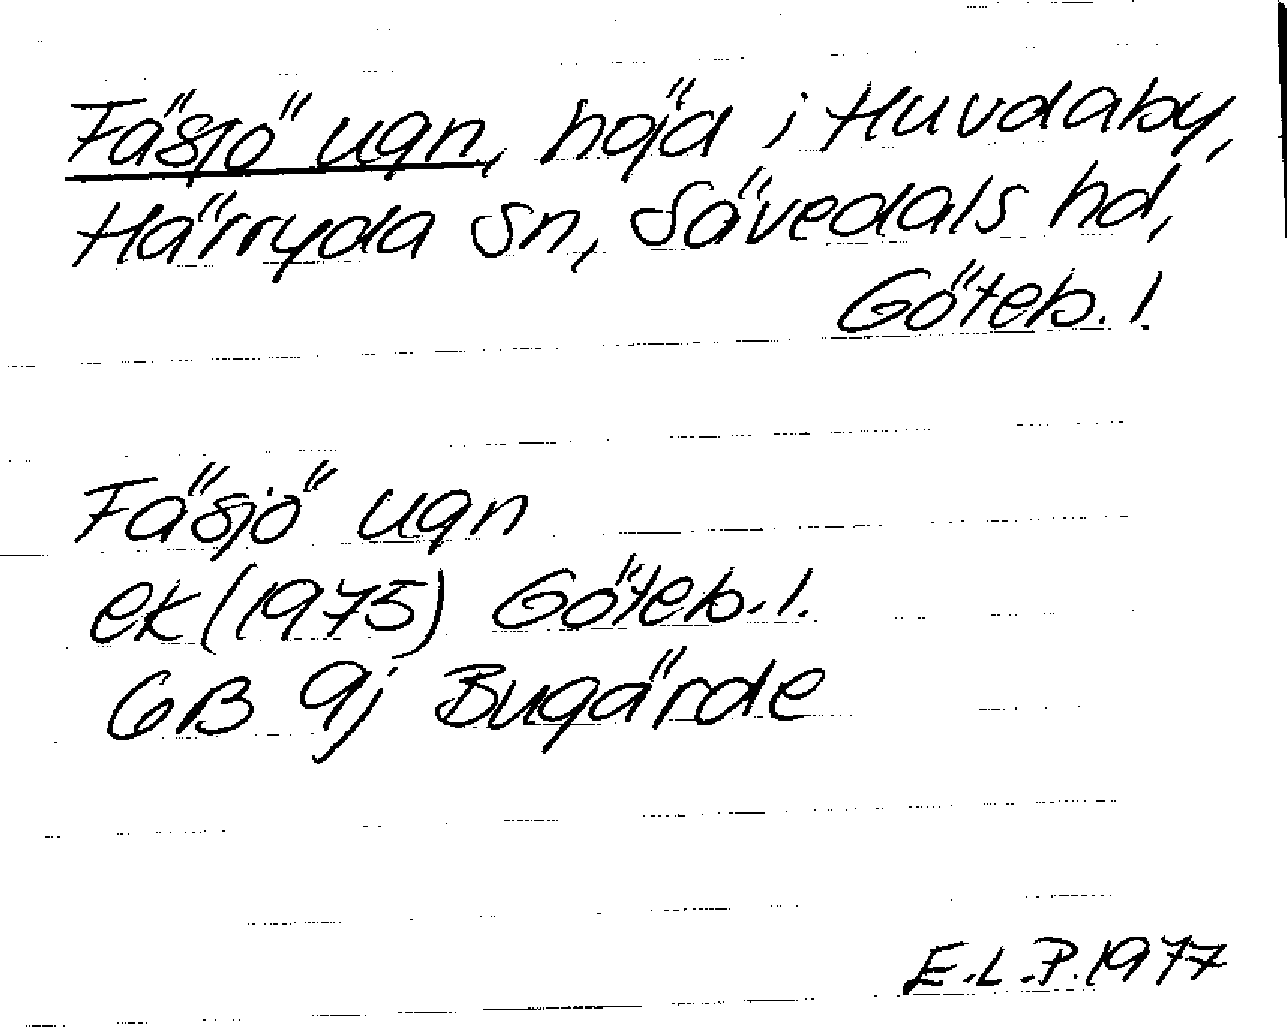 Fäsjö ugn, höjd i Huvdaby,
Härryda sn, Sävedals hd,
Göteb. l.
Fäsjö ugn
ek (1975) Göteb. l.
GB 9j Bugärde
E.L.P. 1977